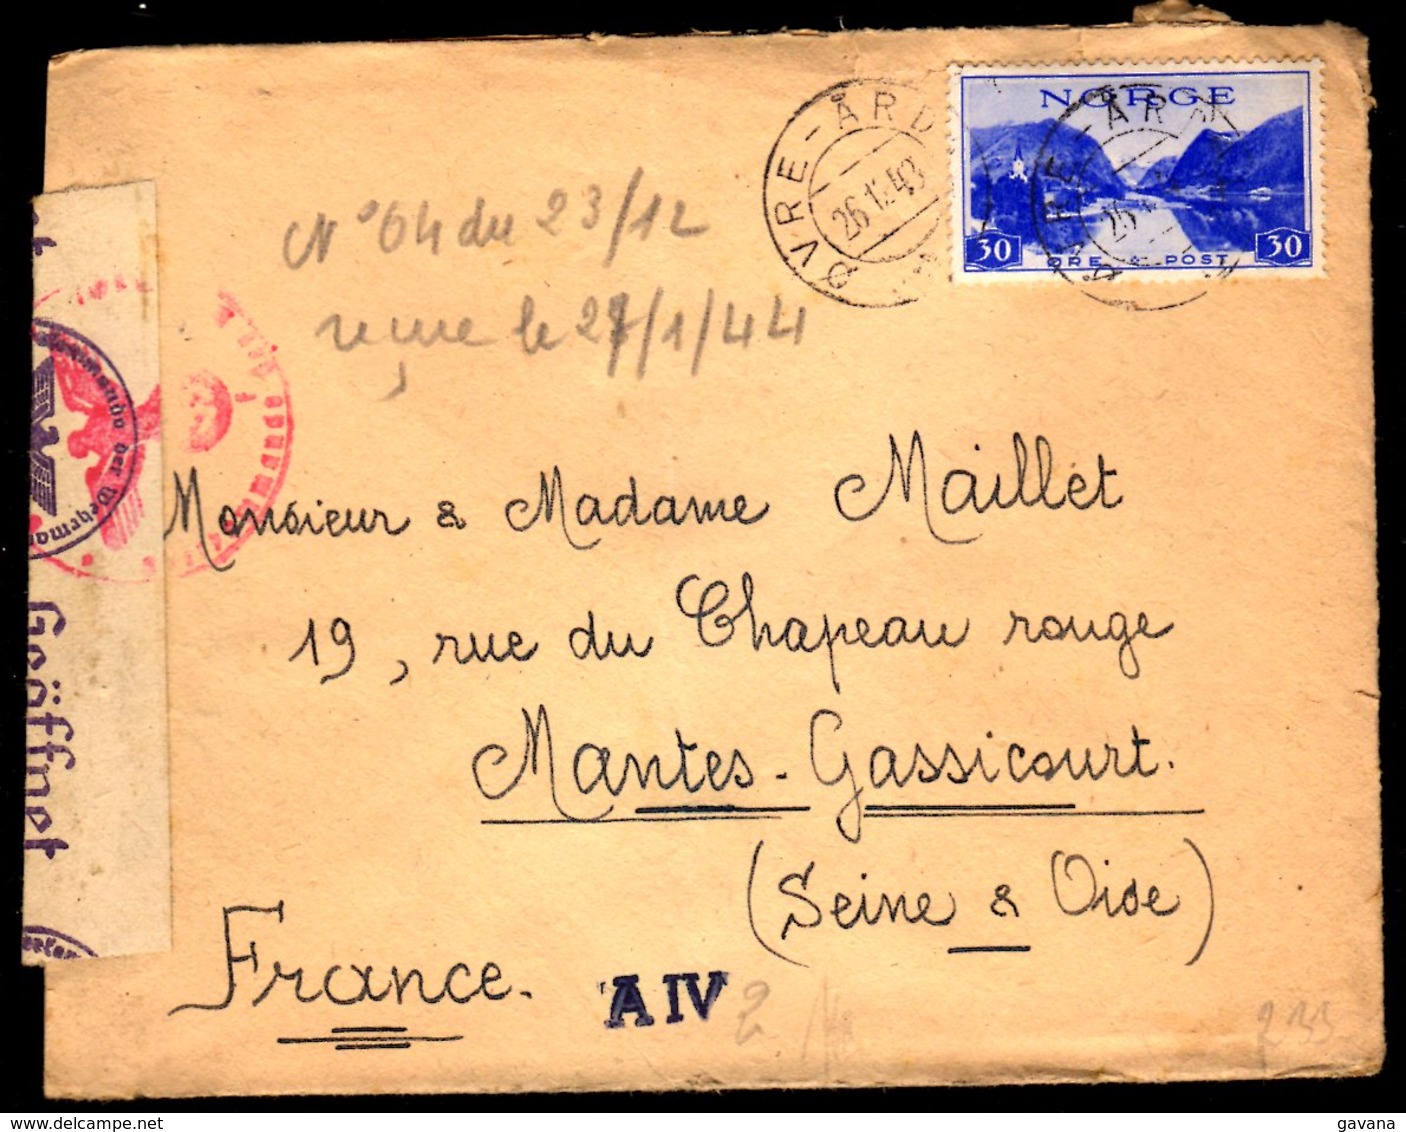 NORGE
30 ØRE & POST 30
ØVRE-ÅRD
26.12.43
ØVRE-ÅR
26
N° 64 du 23/12
reçue le 27/1/44
Monsieur & Madame Maillet
19, rue du Chapeau rouge
Mantes-Gassicourt.
(Seine & Oise)
France.
A IV
2
Geöffnet
der Wehrmac
gavana